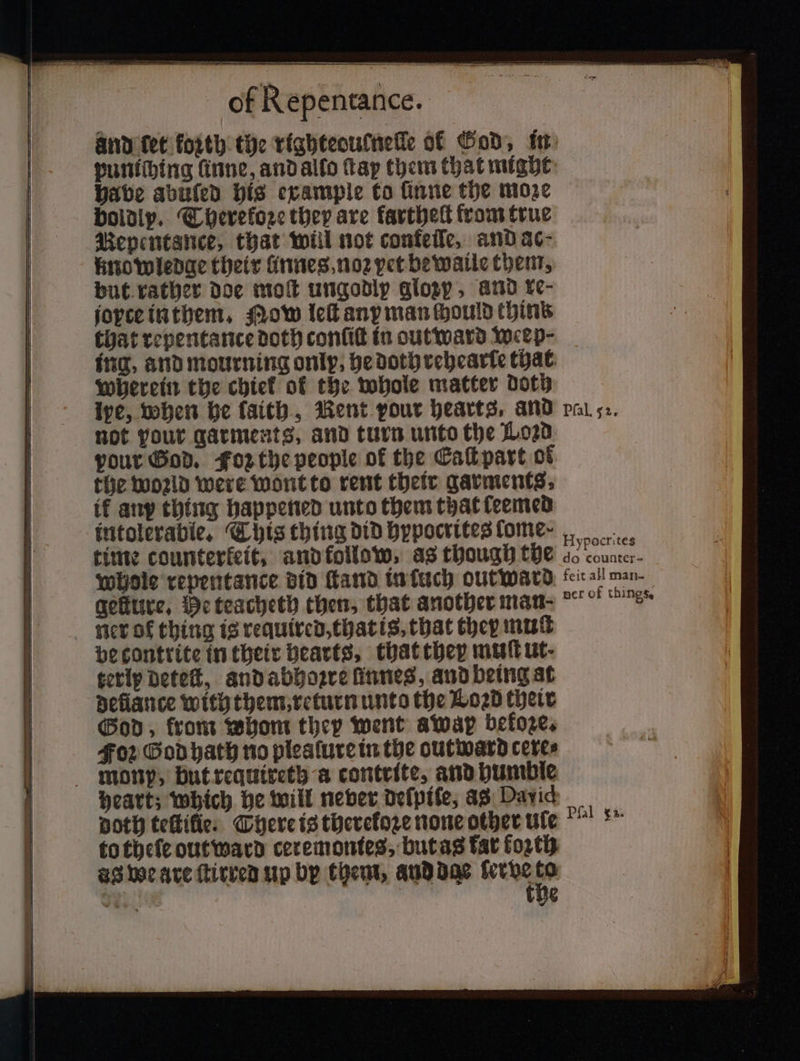 of Repentance.
and ſet foꝛth the righteouſneſſe of God, in
puniſhing ſinne, and alſo ſtay them that might
have abuſed his example to ſinne the moꝛe
boldly. Therefoꝛe they are fartheſt from true
Repentance, that will not confeſſe, and ac-
knowledge their ſinnes, noꝛ yet bewaile them,
but rather doe moſt ungodly gloꝛy, and re-
joyce in them. Now leſt any man ſhould think
that repentance doth conſiſt in outward weep-
ing, and mourning only, he doth rehearſe that
wherein the chief of the whole matter doth
lye, when he ſaith, Rent your hearts, and Pſal. 52.
not your garments, and turn unto the Loꝛd
your God. Foꝛ the people of the Eaſt part of
the woꝛld were wont to rent their garments,
if any thing happened unto them that ſeemed
intolerable. This thing did hypocrites ſome- Hypocrites
time counterfeit, and follow, as though the do counter-
whole repentance did ſtand in ſuch outward feit all man-
geſture. He teacheth then, that another man- ner of things.
ner of thing is required, that is, that they muſt
be contrite in their hearts, that they muſt ut-
terly deteſt, and abhoꝛre ſinnes, and being at
defiance with them, return unto the Loꝛd their
God, from whom they went away befoꝛe.
Foꝛ God hath no pleaſure in the outward cere-
mony, but requireth a contrite, and humble
heart; which he will never deſpiſe, as David
doth teſtifie. There is therefoꝛe none other uſe Pſal 52.
to theſe outward ceremonies, but as far foꝛth
as we are ſtirred up by them, and doe ſerve to
the